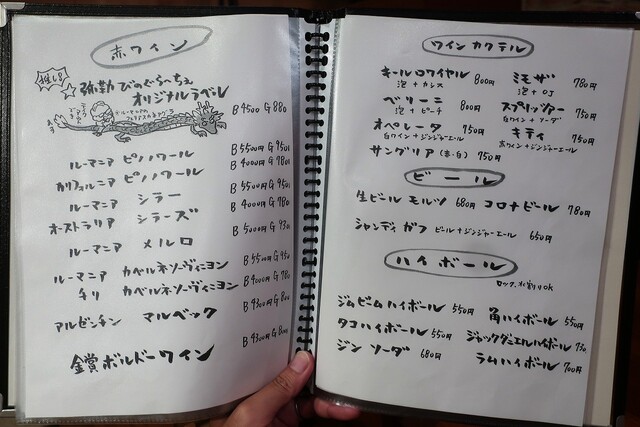 赤ワイン
推し!
弥勒 びのぐらーちぇ
オリジナルラベル
B 4500 G 880
ルーマニア ピノノワール B 5500円 G 950円
カリフォルニア ピノノワール B 4000円 G 780円
ルーマニア シラー B 5500円 G 950円
オーストラリア シラーズ B 4000円 G 780円
ルーマニア メルロ
ルーマニア カベルネソーヴィニヨン
チリ カベルネソーヴィニヨン B 4000円 G 780
アルゼンチン マルベック B 4300円 G 800
金賞ボルドーワイン B 4300円 G 800
ワインカクテル
キールロワイヤル 800円 ミモザ 780円
泡+カシス 泡+OJ
ベリーニ 800円 スプリッツァー 750円
泡+ピーチ 白ワイン+ソーダ
オペレータ 750円 キティ 750円
白ワイン+ジンジャーエール 赤ワイン+ジンジャーエール
サングリア (赤・白) 750円
ビール
生ビール モルツ 680円 コロナビール 780円
シャンディ ガフ ビール+ジンジャーエール 650円
ハイボール
ロック、水割りOK
ジムビームハイボール 550円 角ハイボール 550円
タコハイボール 550円 ジャックダニエルハイボール 730
ジン ソーダ 680円 ラムハイボール 700円